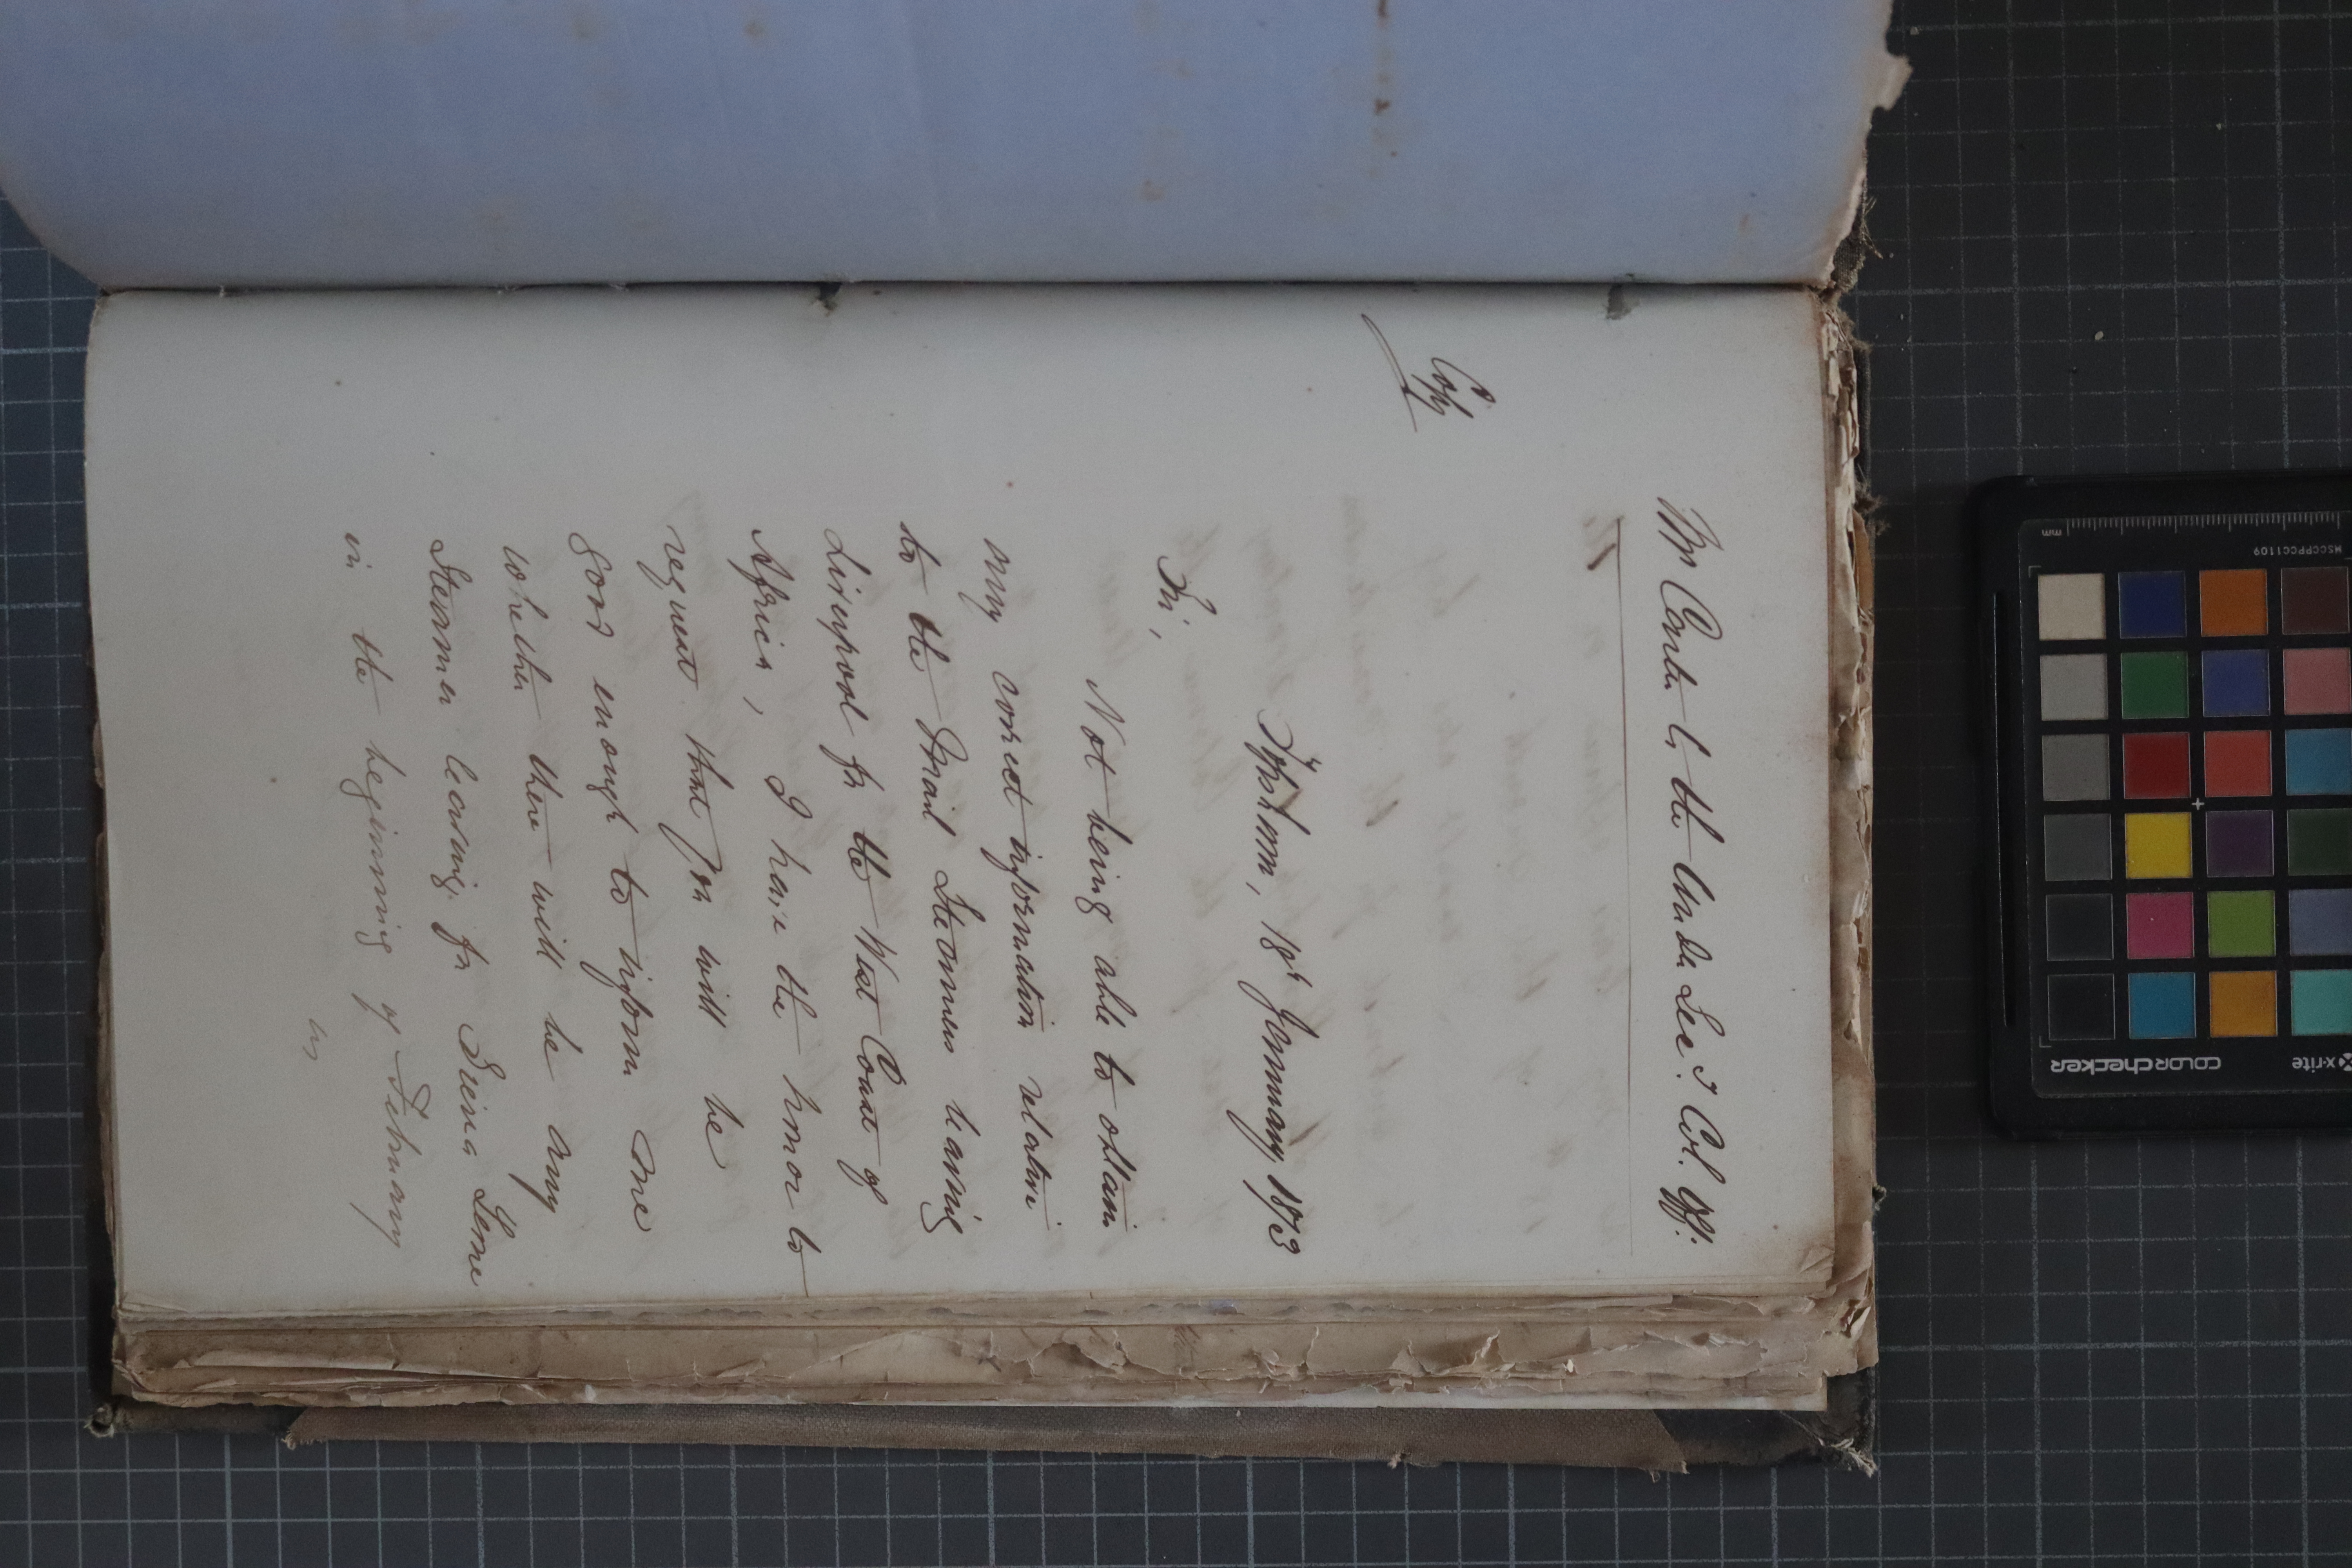 Mr Carter to the Under Sec. & Col. Off.
Copy
Topsham, 18th January 1873
Sir,
Not being able to obtain
any correct information relative
to the Mail Steamers leaving
Liverpool for the West Coast of
Africa, I have the honor to
request that you will be
good enough to inform me
whether there will be any
Steamer leaving for Sierra Leone
in the beginning of February
as